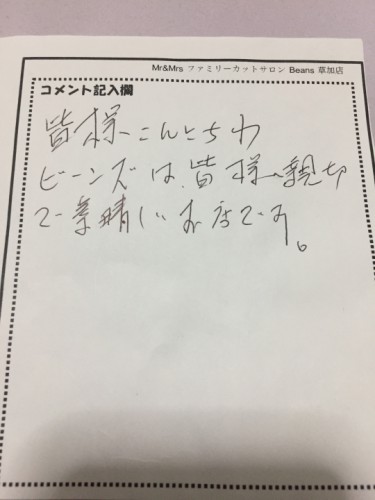 Mr&Mrs ファミリーカットサロン Beans 草加店
コメント記入欄
皆様こんにちわ
ビーンズは、皆様親切
で素晴しいお店です。